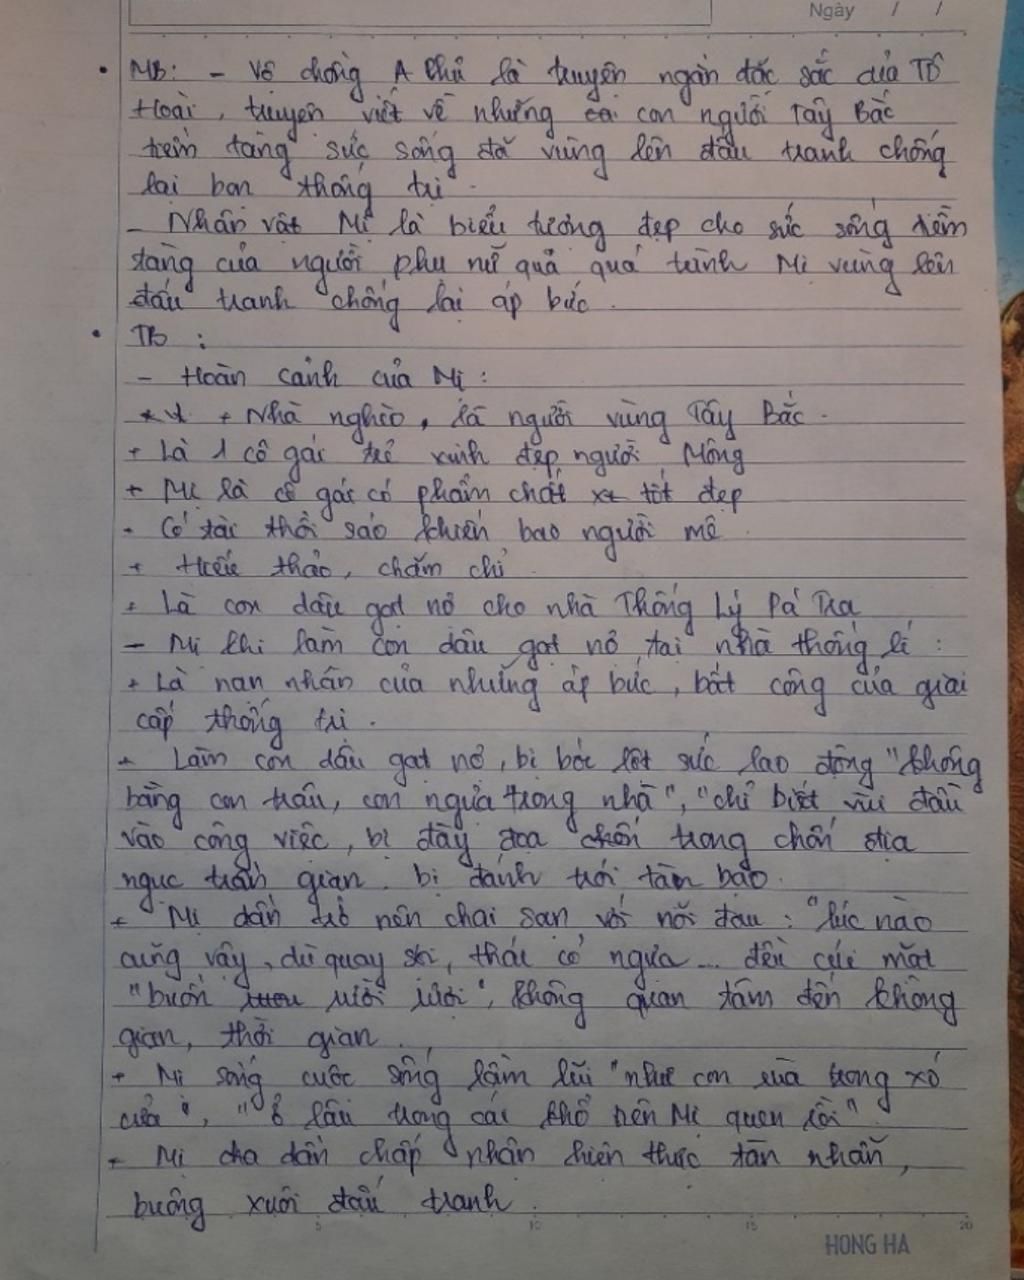 Ngày / /
• MB: - Vợ chồng A Phủ là truyện ngắn đặc sắc của Tô
Hoài, truyện viết về những con người Tây Bắc
tiềm tàng sức sống đã vùng lên đấu tranh chống
lại bọn thống trị.
- Nhân vật Mị là biểu tượng đẹp cho sức sống tiềm
tàng của người phụ nữ quả quá trình Mị vùng lên
đấu tranh chống lại áp bức.
• TB :
- Hoàn cảnh của Mị :
+ Nhà nghèo, là người vùng Tây Bắc.
+ Là 1 cô gái trẻ xinh đẹp người Mông
+ Mị là cô gái có phẩm chất tốt đẹp
+ Có tài thổi sáo khiến bao người mê.
+ Hiếu thảo, chăm chỉ.
+ Là con dâu gạt nợ cho nhà Thống Lý Pá Tra
- Mị khi làm con dâu gạt nợ tại nhà thống lí :
+ Là nạn nhân của những áp bức, bất công của giai
cấp thống trị.
+ Làm con dâu gạt nợ, bị bóc lột sức lao động "không
bằng con trâu, con ngựa trong nhà", "chỉ biết vùi đầu
vào công việc, bị đày đọa trong chốn địa
ngục trần gian. bị đánh trói tàn bạo.
+ Mị dần trở nên chai sạn với nỗi đau : "lúc nào
cũng vậy, dù quay sợi, thái cỏ ngựa... đều cúi mặt
"buồn rười rượi", không quan tâm đến không
gian, thời gian...
+ Mị sống cuộc sống lầm lũi "như con rùa trong xó
cửa", "ở lâu trong cái khổ nên Mị quen rồi"
+ Mị cha dần chấp nhận hiện thực tàn nhẫn,
buông xuôi đấu tranh.
5 10 15 20
HONG HA